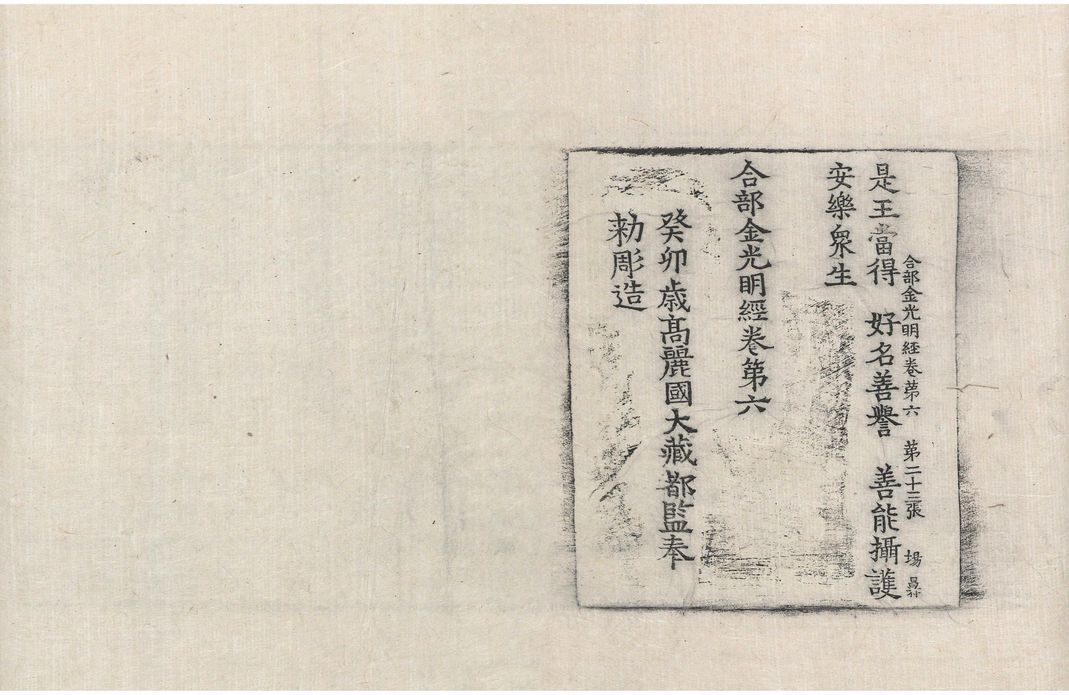 合部金光明経卷第六　第二十三張　場
是王當得　好名善譽　善能攝護
安樂衆生
合部金光明經卷第六
癸卯歲高麗國大藏都監奉
勅彫造